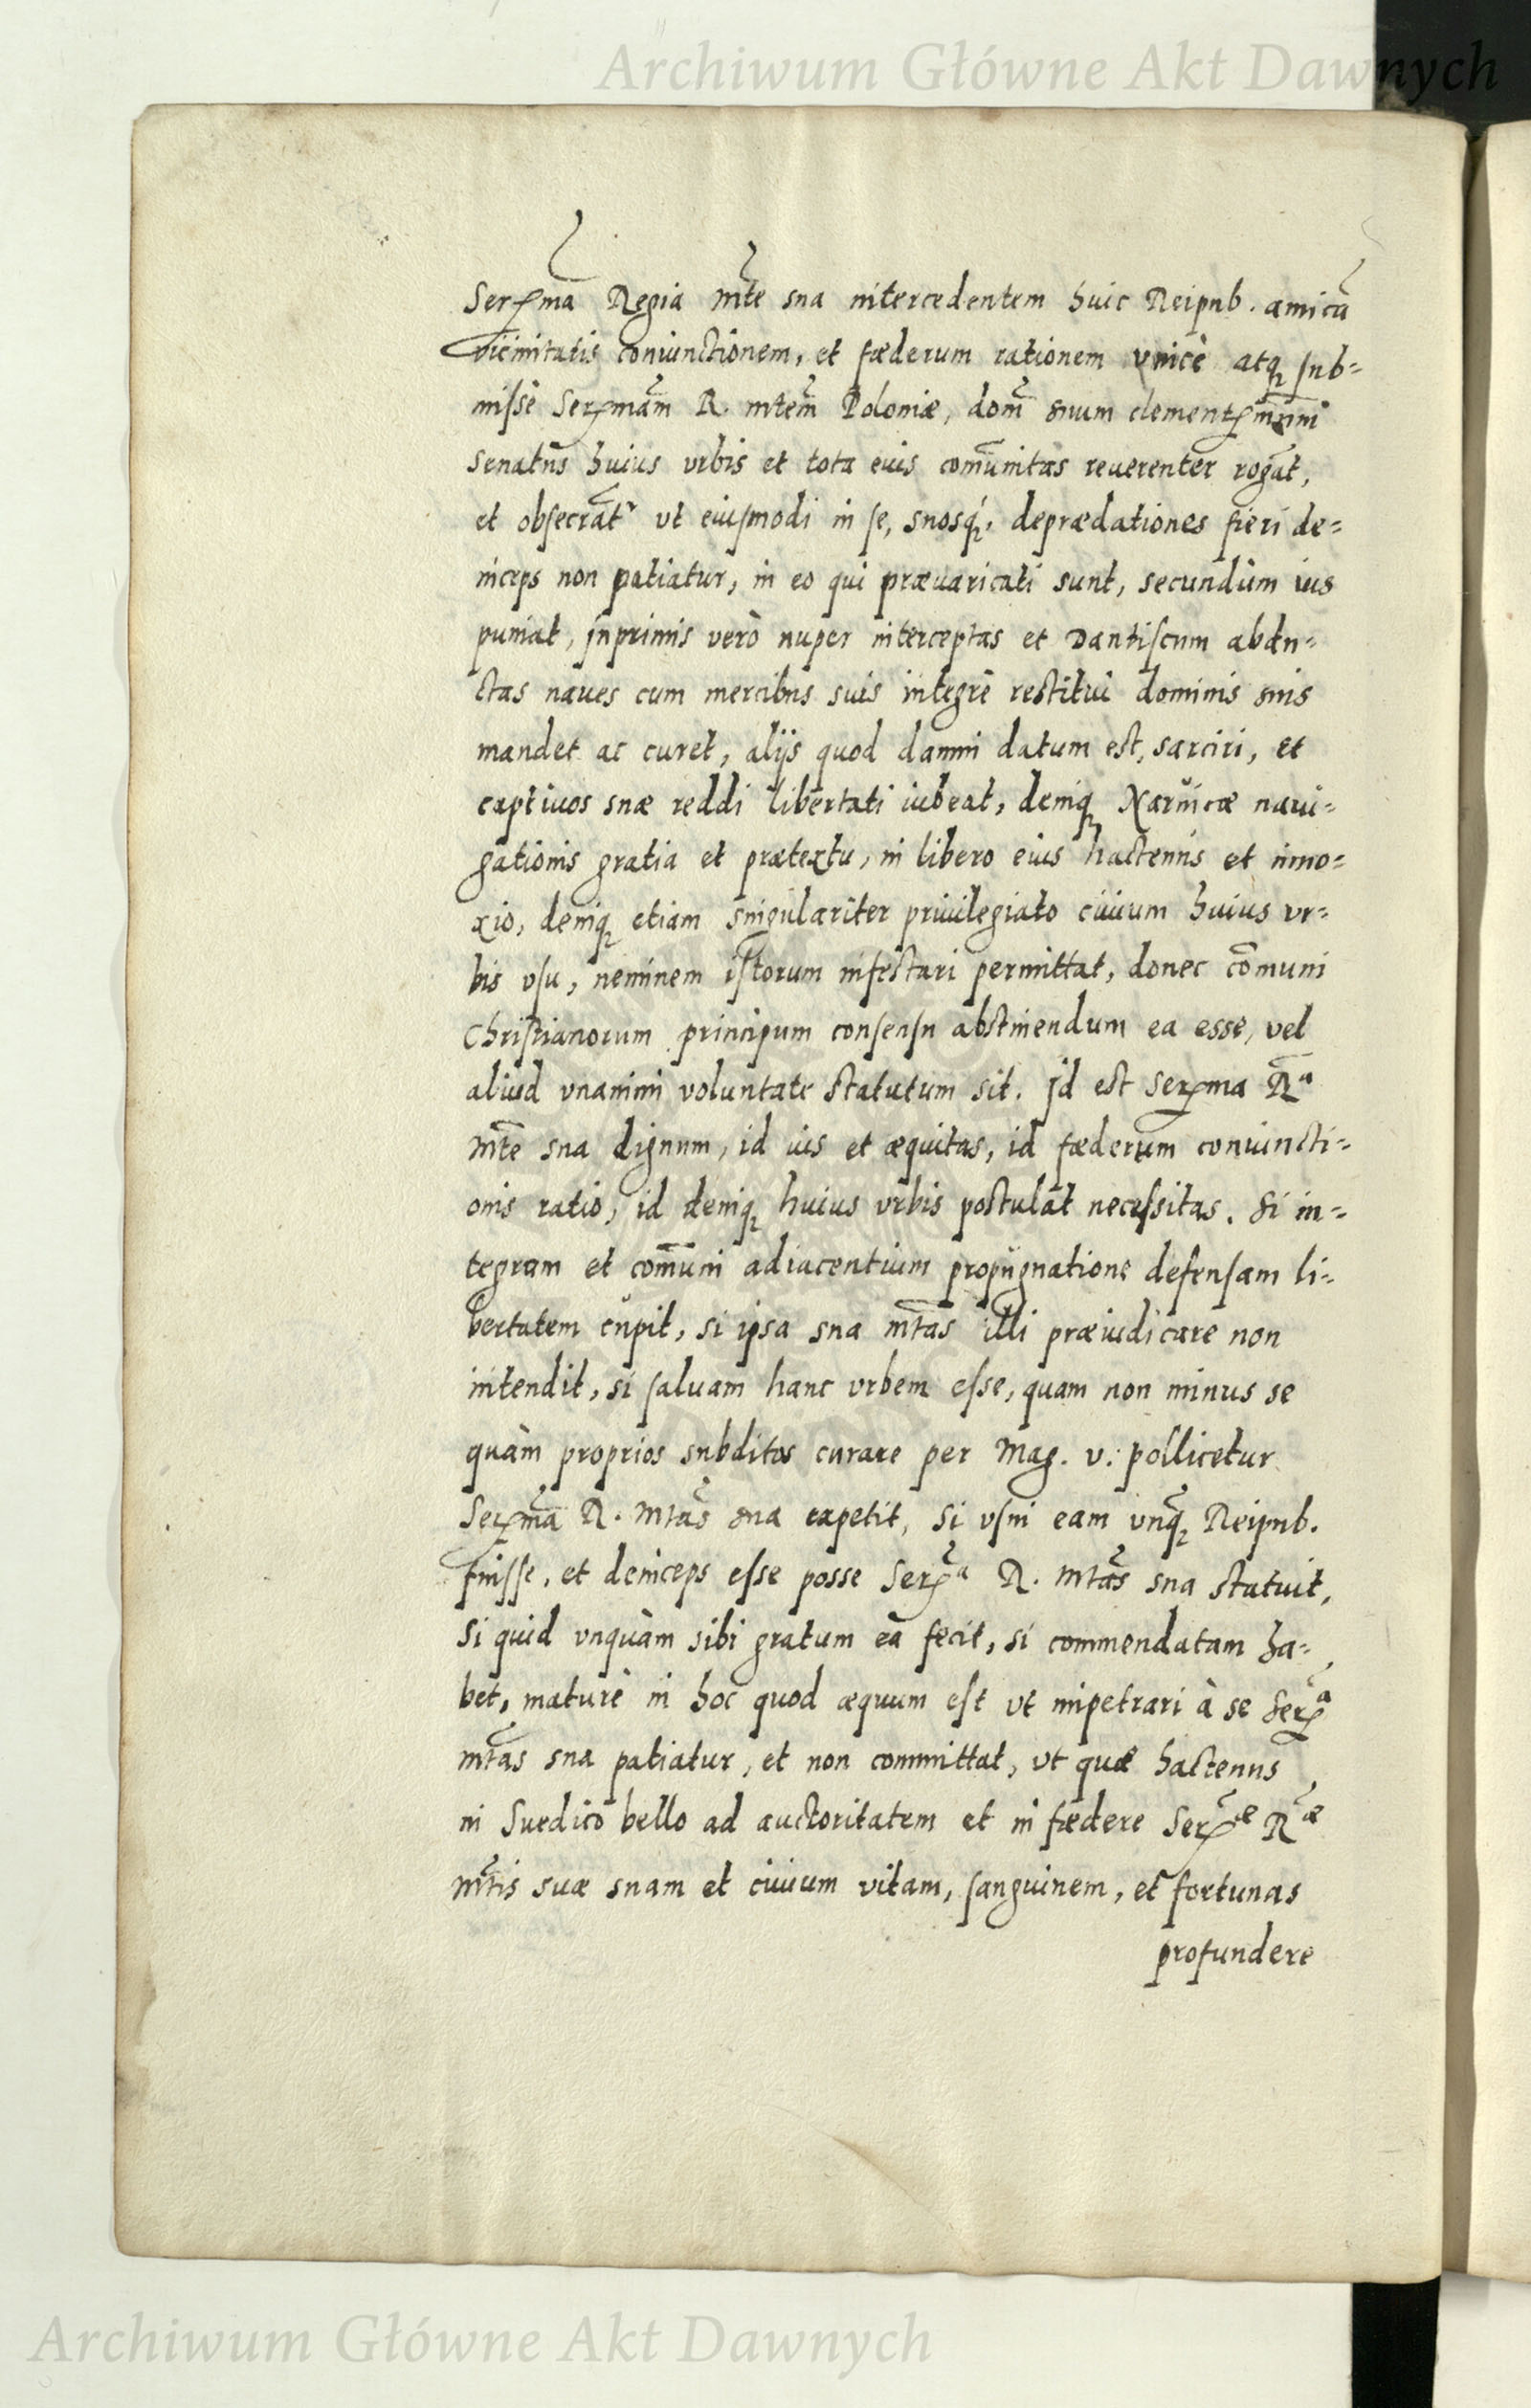 Archiwum Główne Akt Dawnych
Serꝑma Regia mte sua intercedentem huic Reipub. amicã
vicinitatis coniunctionem, et fæderum rationem vnicè atqꝫ sub=
missè Serꝑmam R. mtem Poloniæ, dom̃ suum clementꝑmum
senatus huius vrbis et tota eius com̃unitas reuerenter rogat,
et obsecrat vt eiusmodi in se, suosqꝫ, deprædationes fieri de=
inceps non patiatur, in eo qui præuaricati sunt, secundùm ius
puniat, inprimis verò nuper interceptas et Dantiscum abdu=
ctas naues cum mercibus suis integrè restitui dominis suis
mandet ac curet, alijs quod damni datum est, sarciri, et
captiuos suæ reddi libertati iubeat, deniqꝫ Naruicæ naui=
gationis gratia et prætextu, in libero eius hactenus et inno=
xio, deniqꝫ etiam singulariter priuilegiato ciuium huius vr=
bis vsu, neminem istorum infestari permittat, donec com̃uni
Christianorum principum consensu abstinendum ea esse, vel
aliud vnanimi voluntate statutum sit. Id est Serꝑma Rᵃ
mte sua dignum, id ius et æquitas, id fæderum coniuncti=
onis ratio, id deniqꝫ huius vrbis postulat necessitas. Si in=
tegram et com̃uni adiacentium propugnatione defensam li=
bertatem cupit, si ipsa sua mtas illi præiudicare non
intendit, si saluam hanc vrbem esse, quam non minus se
quàm proprios subditos curare per Mag. v. pollicetur
Serꝑma R. mtas sua expetit, si vsui eam vnqꝫ Reipub.
fuisse, et deinceps esse posse Serꝑᵃ R. mtas sua statuit,
si quid vnquàm sibi gratum ea fecit, si commendatam ha=
bet, maturè in hoc quod æquum est vt impetrari à se Serꝑᵃ
mtas sua patiatur, et non committat, vt quæ hactenus
in Suedico bello ad auctoritatem et in fædere Serꝑæ Ræ
mtis suæ suam et ciuium vitam, sanguinem, et fortunas
profundere
Archiwum Główne Akt Dawnych